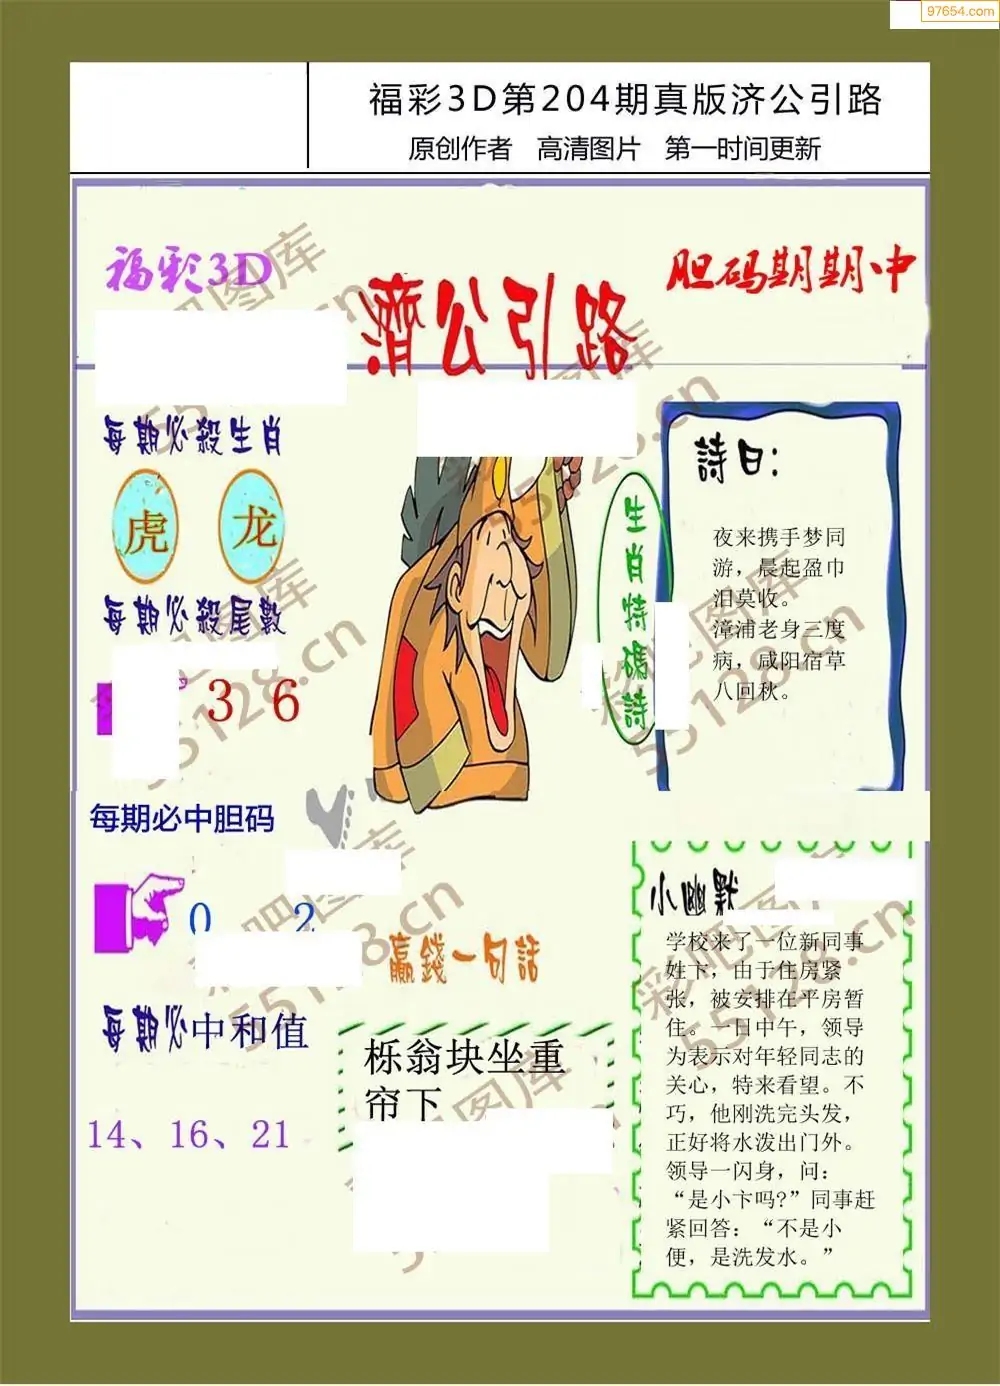 97654.com
福彩3D第204期真版济公引路
原创作者 高清图片 第一时间更新
福彩3D
濟公引路
胆码期期中
每期必殺生肖
虎 龙
每期必殺尾數
3 6
每期必中胆码
0 2
每期必中和值
14、16、21
生肖特碼詩
詩曰:
夜来携手梦同
游，晨起盈巾
泪莫收。
漳浦老身三度
病，咸阳宿草
八回秋。
赢錢一句話
栎翁块坐重
帘下
小幽默
学校来了一位新同事
姓下，由于住房紧
张，被安排在平房暂
住。一日中午，领导
为表示对年轻同志的
关心，特来看望。不
巧，他刚洗完头发，
正好将水泼出门外。
领导一闪身，问：
“是小卞吗?”同事赶
紧回答：“不是小
便，是洗发水。”
彩吧图库
55128.cn
彩吧图库
55128.cn
彩吧图库
55128.cn